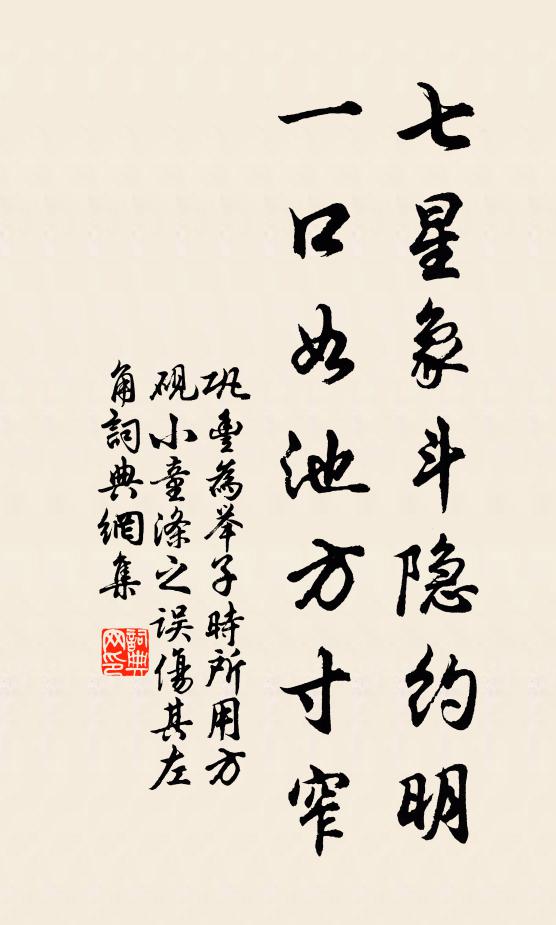 七星象斗隐约明
一口如池方寸窄
巩丰為举子時所用方
砚小童涤之误傷其左
角詞典網集
詞典网印